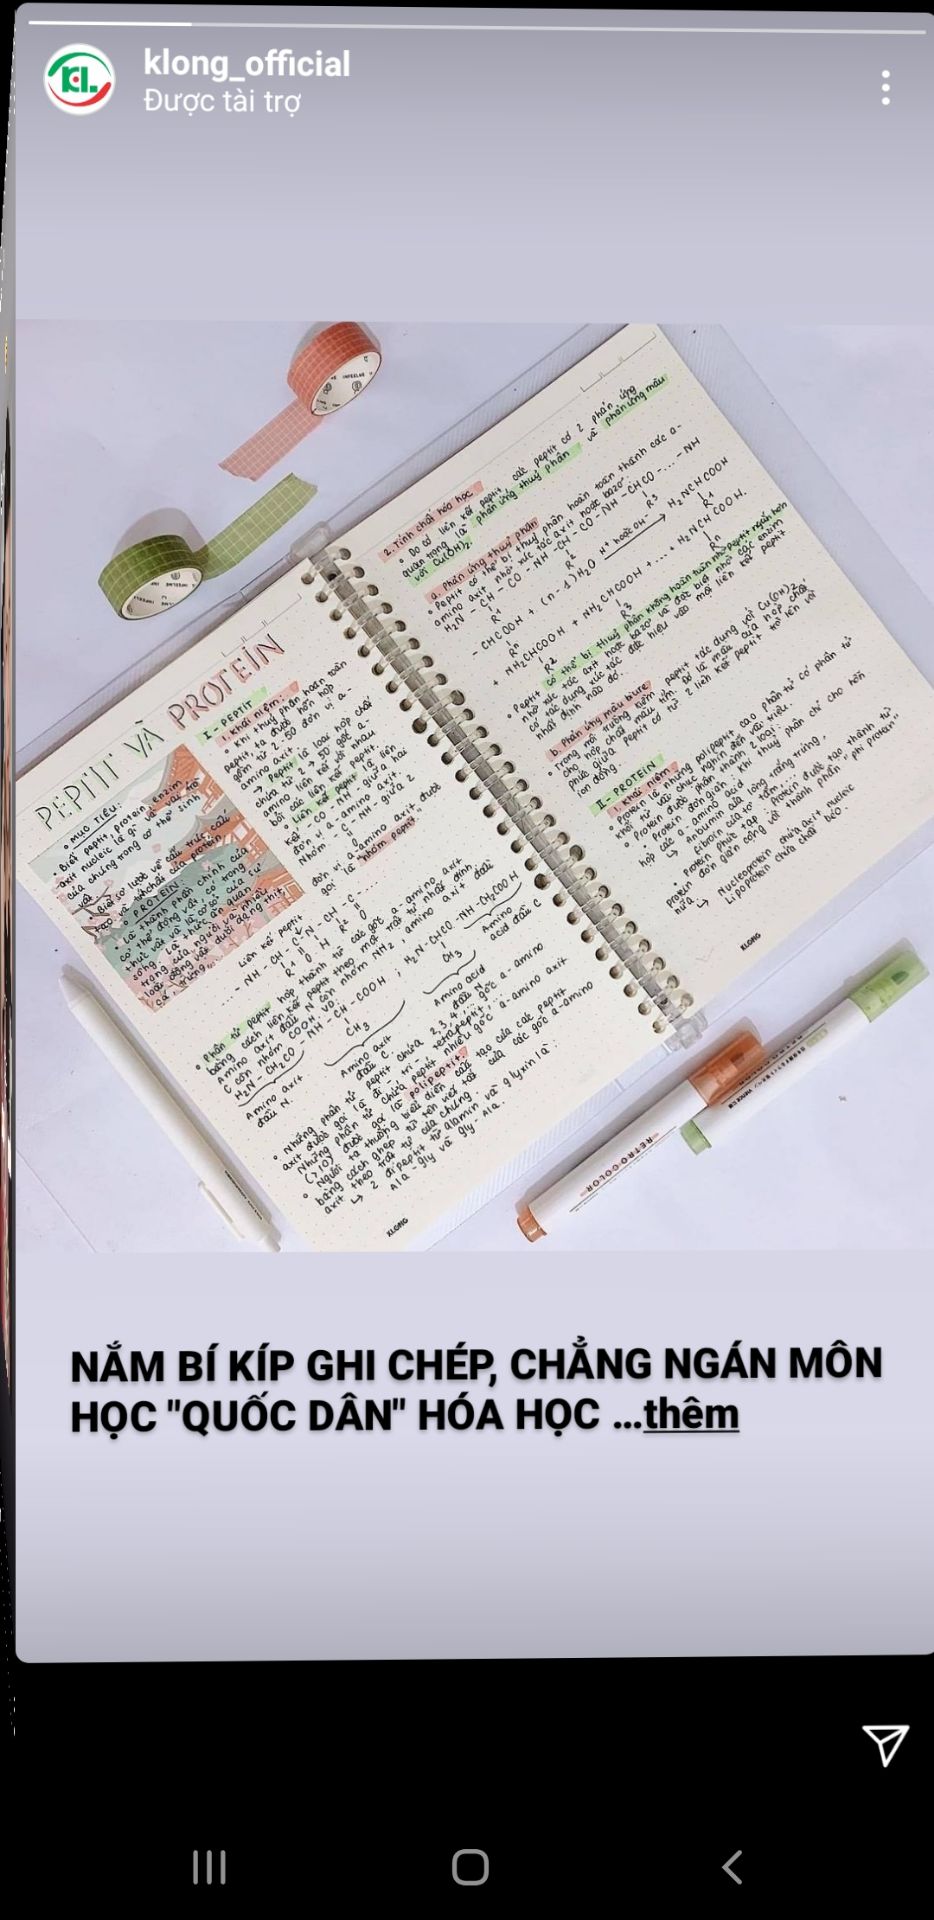 klong_official
Được tài trợ
PEPTIT VÀ PROTEIN
• MỤC TIÊU:
• Biết peptit, protein, enzim
axit nucleic là gì và vai trò
của chúng trong cơ thể sinh
vật
• Biết sơ lược về cấu trúc, cấu
tạo và tính chất của protein
• PROTEIN:
• Là thành phần chính của
cơ thể động vật có trong
thực vật và là cơ sở của sự
sống. Là thức ăn quan
trọng của người và nhiều
loài động vật dưới dạng thịt
cá, trứng,...
I - PEPTIT
1. Khái niệm:
• Khi thuỷ phân hoàn toàn
peptit, ta được hỗn hợp
gồm từ 2 - 50 đơn vị a-
amino axit
→ Peptit là loại hợp chất
chứa từ 2 → 50 gốc a-
amino liên kết với nhau
bởi các liên kết peptit
• Liên kết peptit là liên
kết - CO - NH - giữa hai
đơn vị a - amino axit.
Nhóm - C - NH - giữa 2
đơn vị a amino axit, được
gọi là "nhóm peptit"
Liên kết peptit
... - NH - CH - C - N - CH - C - ...
R1 O H R2 O
• Phân tử peptit hợp thành từ các gốc a-amino axit
bằng cách liên kết peptit theo một trật tự nhất định
Amino axit đầu N còn nhóm NH2, amino axit đầu
C còn nhóm COOH. VD:
H2N - CH2CO - NH - CH - COOH ; H2N - CHCO - NH - CH2COOH
CH3
CH3
Amino axit
đầu N.
Amino axit
đầu C
Amino acid
đầu N
Amino
acid đầu C
• Những phân tử peptit chứa 2,3,4,... gốc a-amino
axit được gọi là đi - tri - tetrapeptit,...
Những phân tử chứa nhiều gốc a-amino axit
(>10) được gọi là polipeptit
• Người ta thường biểu diễn cấu tạo của các peptit
bằng cách ghép từ tên viết tắt của các gốc a-amino
axit theo trật tự của chúng
↳ 2 đipeptit từ alamin và glyxin là:
Ala - gly và gly - Ala.
KLONG
2. Tính chất hóa học
• Do có liên kết peptit, các peptit có 2 phản ứng
quan trọng là phản ứng thuỷ phân và phản ứng màu
với Cu(OH)2
a. Phản ứng thuỷ phân
• Peptit có thể bị thuỷ phân hoàn toàn thành các a-
amino axit nhờ xúc tác axit hoặc bazơ:
H2N - CH - CO - NH - CH - CO - NH - CHCO - ... - NH
R1 R2 R3
- CHCOOH + (n-1)H2O H+ hoặc OH- → H2NCHCOOH
Rn R1
+ NH2CHCOOH + NH2CHCOOH + ... + H2NCHCOOH.
R2 R3 Rn
• Peptit có thể bị thuỷ phân không hoàn toàn nhờ peptit ngắn hơn
nhờ xúc tác axit hoặc bazơ và đặc biệt nhờ các enzim
có tác dụng xúc tác đặc hiệu vào mỗi liên kết peptit
nhất định nào đó.
b. Phản ứng màu bure
• Trong môi trường kiềm, peptit tác dụng với Cu(OH)2
cho hợp chất màu tím. Đó là màu của hợp chất
phức giữa peptit có từ 2 liên kết peptit trở lên với
ion đồng
II - PROTEIN
1. Khái niệm
• Protein là những polipeptit cao phân tử có phân tử
khối từ vài chục nghìn đến vài triệu.
• Protein được phân thành 2 loại:
• Protein đơn giản: Khi thuỷ phân chỉ cho hỗn
hợp các a-amino acid
↳ Anbumin của lòng trắng trứng,
fibroin của tơ tằm...
• Protein phức tạp: protein được tạo thành từ
protein đơn giản cộng với thành phần "phi protein"
nữa
↳ Nucleoprotein chứa axit nucleic
Lipoprotein chứa chất béo.
KLONG
RETRO COLOR
NẮM BÍ KÍP GHI CHÉP, CHẲNG NGÁN MÔN
HỌC "QUỐC DÂN" HÓA HỌC ...thêm